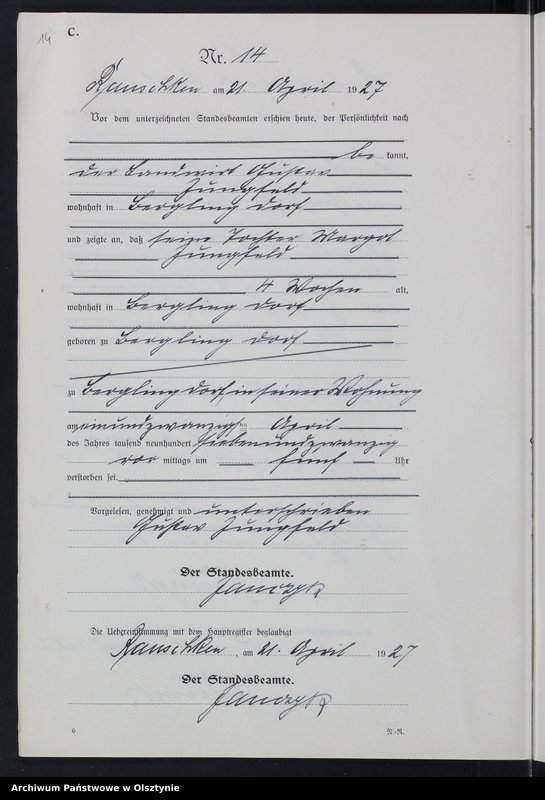 14
C.
Nr. 14
Rauschken am 21. April 1927
Vor dem unterzeichneten Standesbeamten erschien heute, der Persönlichkeit nach
be kannt,
der Landwirt Gustav
Jungfeld
wohnhaft in Bergling Dorf
und zeigte an, daß seine Tochter Margot
Jungfeld
4 Wochen alt,
wohnhaft in Bergling Dorf
geboren zu Bergling Dorf
zu Bergling Dorf, in seiner Wohnung
am einundzwanzigsten April
des Jahres tausend neunhundert siebenundzwanzig
vor mittags um fünf Uhr
verstorben sei.
Vorgelesen, genehmigt und unterschrieben
Gustav Jungfeld
Der Standesbeamte.
Die Uebereinstimmung mit dem Hauptregister beglaubigt
Rauschken, am 21. April 1927
Der Standesbeamte.
6 N.-R.
Archiwum Państwowe w Olsztynie